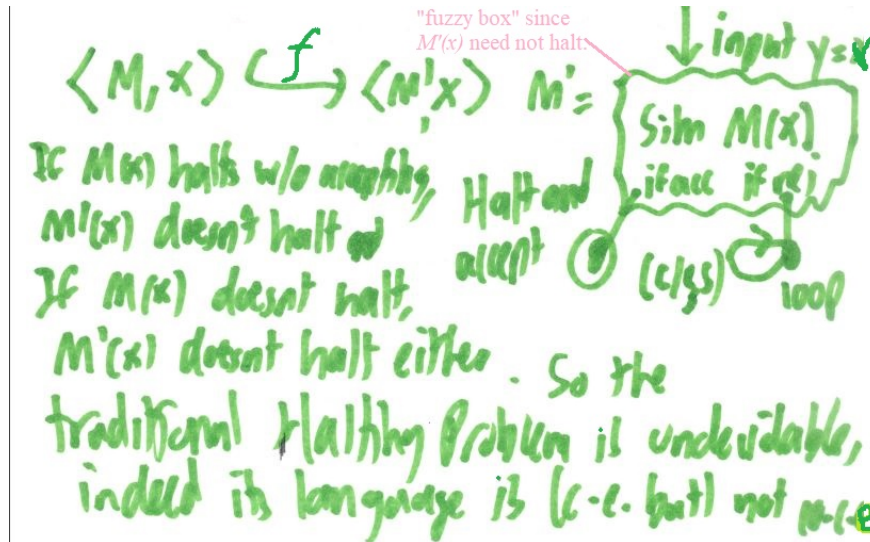 "fuzzy box" since
M'(x) need not halt.
input y=x
⟨M,x⟩ f ⟨M',x⟩ M'=
Sim M(x)
if acc if rej
If M(x) halts w/o accepting,
M'(x) doesn't halt
Halt and
accept
(c/gs)
loop
If M(x) doesnt halt,
M'(x) doesnt halt either. So the
traditional Halting Problem is undecidable,
indeed its language is (c.e. but) not